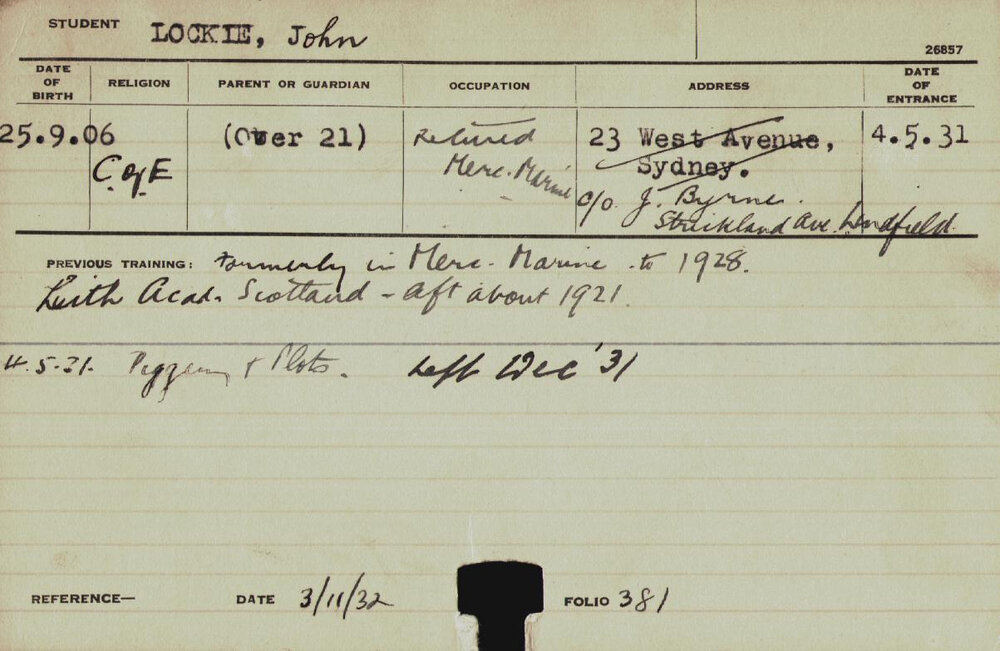 STUDENT LOCKIE, John
26857
DATE OF BIRTH RELIGION PARENT OR GUARDIAN OCCUPATION ADDRESS DATE OF ENTRANCE
25.9.06 (Over 21) Retired 23 West Avenue, 4.5.31
C of E Merc. Marine Sydney.
c/o J. Byrne.
Strickland Ave Lindfield.
PREVIOUS TRAINING: Formerly in Merc. Marine to 1928.
Leith Acad. Scotland - aft about 1921.
4.5.31. Piggery & Plots. Left Dec '31
REFERENCE— DATE 3/11/32 FOLIO 381